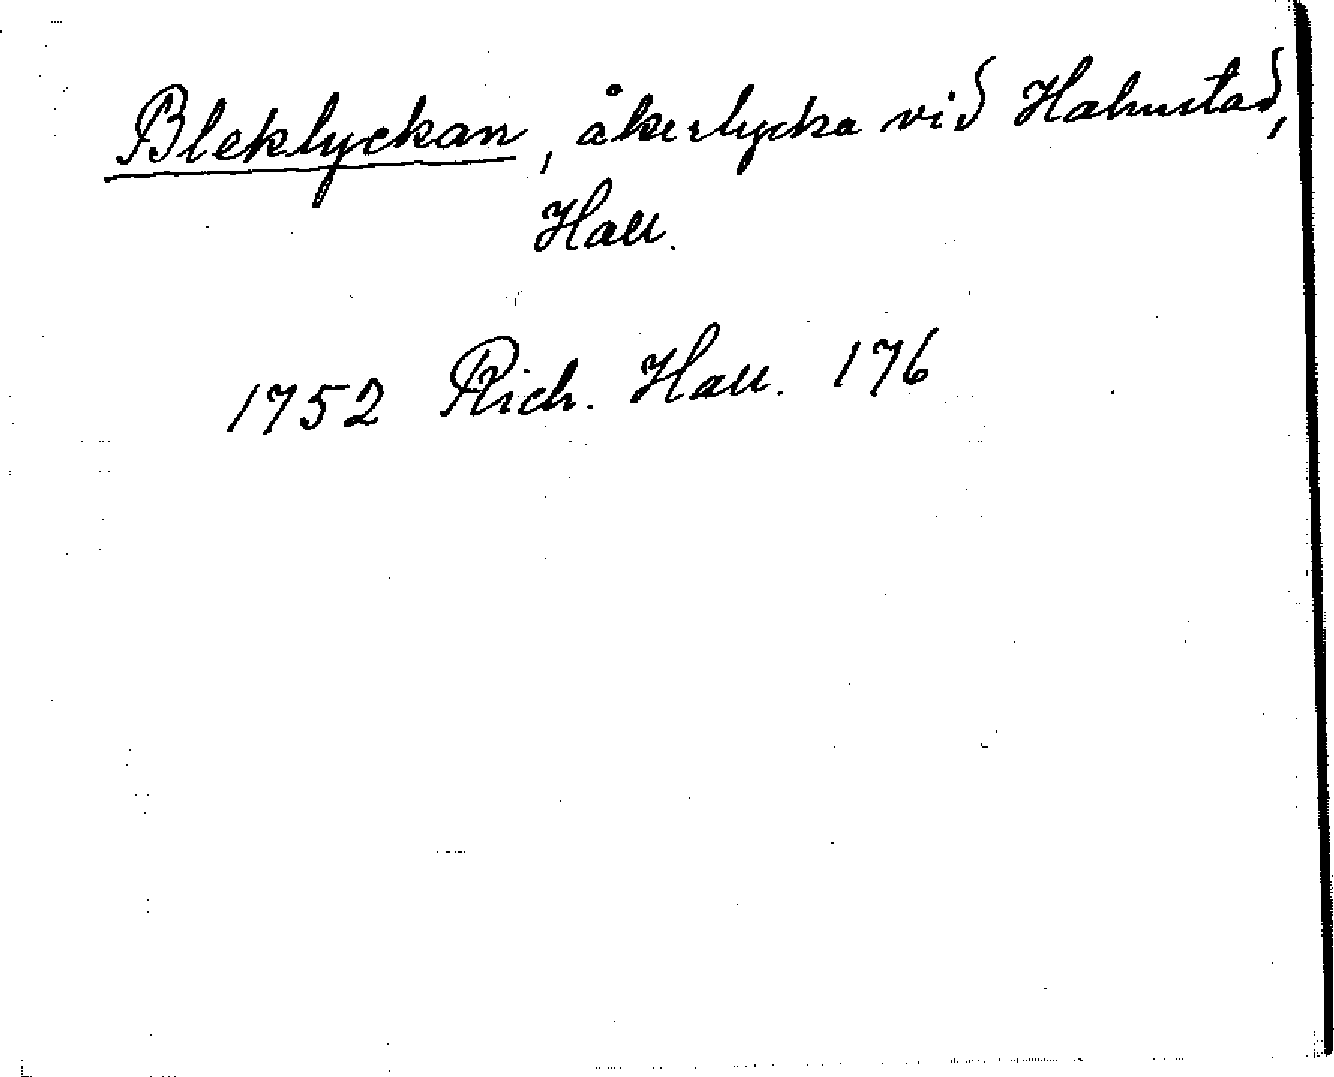 Bleklyckan, åkerlycka vid Halmstad,
Hall.
1752 Rich. Hall. 176